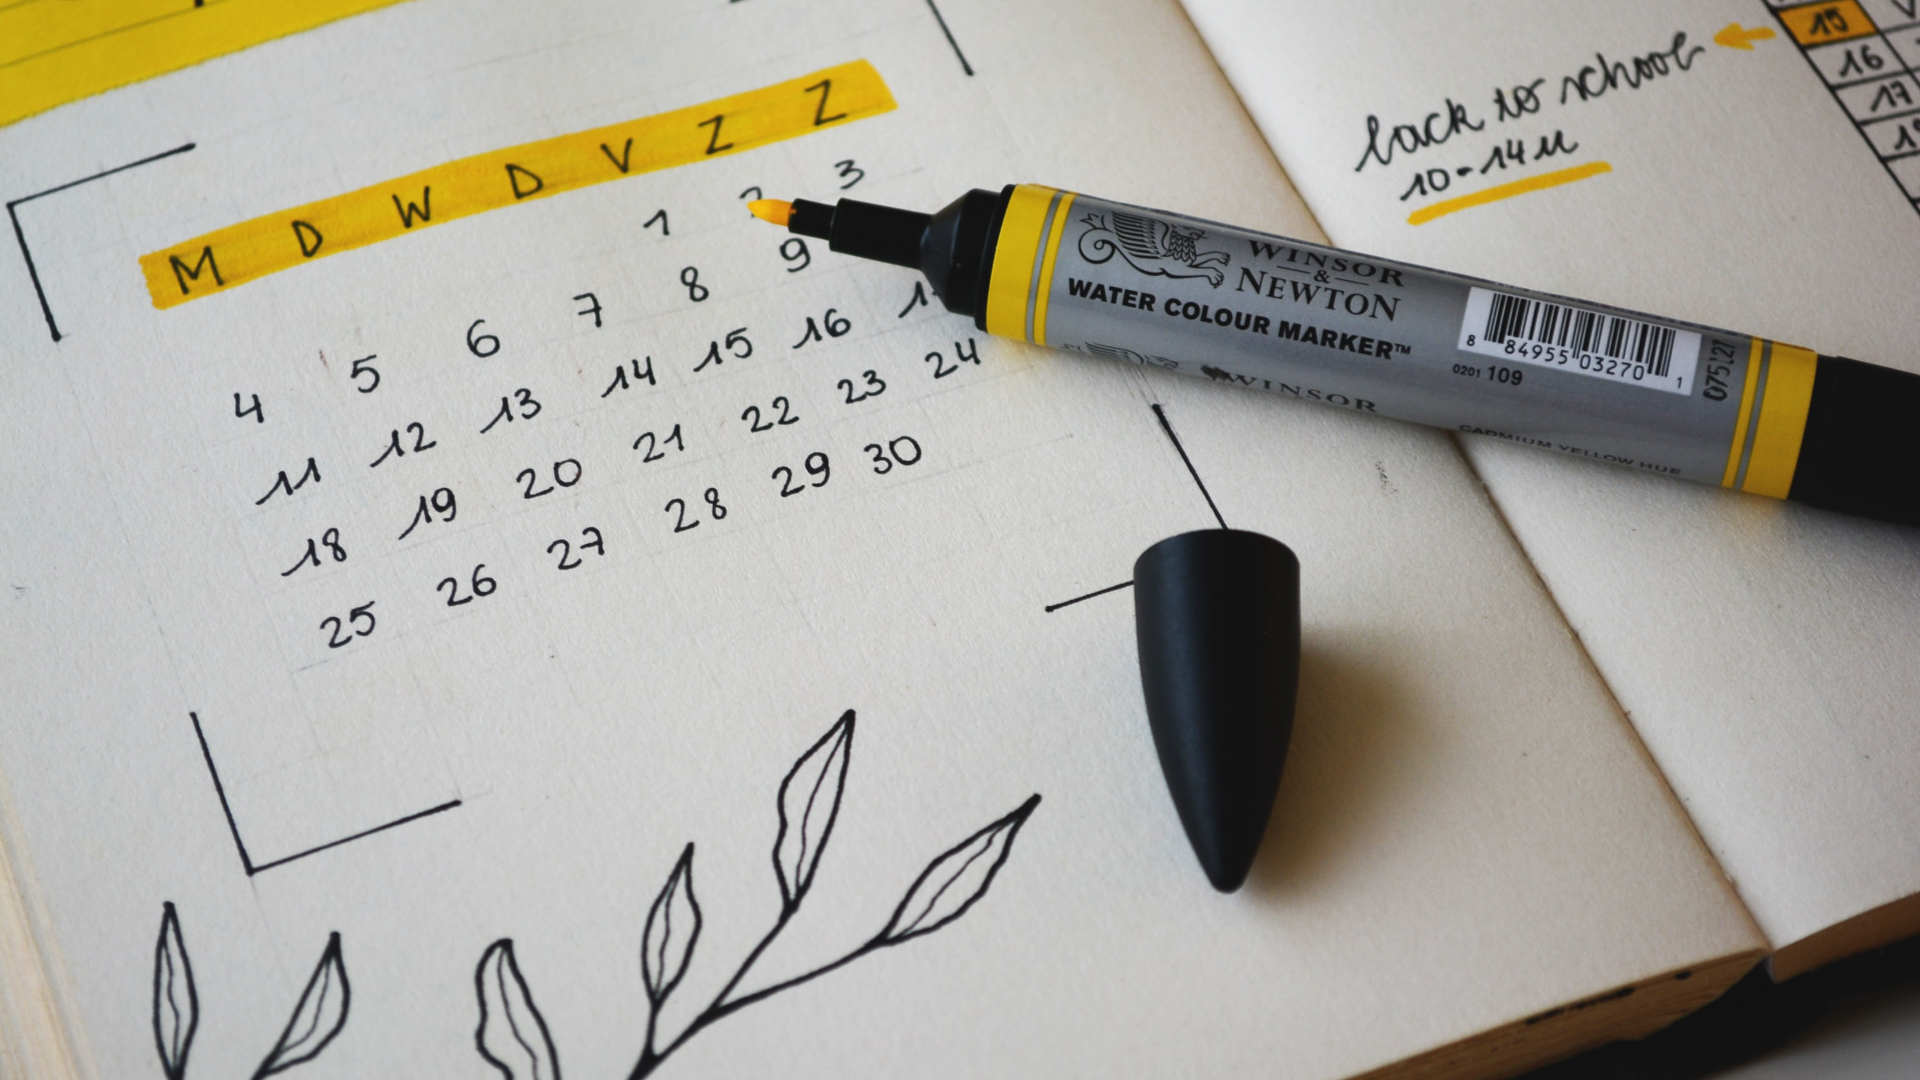 M D W D V Z Z
1 2 3
4 5 6 7 8 9
11 12 13 14 15 16
18 19 20 21 22 23 24
25 26 27 28 29 30
back to school
10-14u
15
16
17
WINSOR
&
NEWTON
WATER COLOUR MARKER™
8 84955 03270 1
0201 109
075127
WINSOR
CADMIUM YELLOW HUE